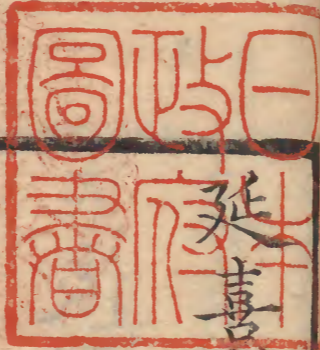 日本
政府
圖書
延喜